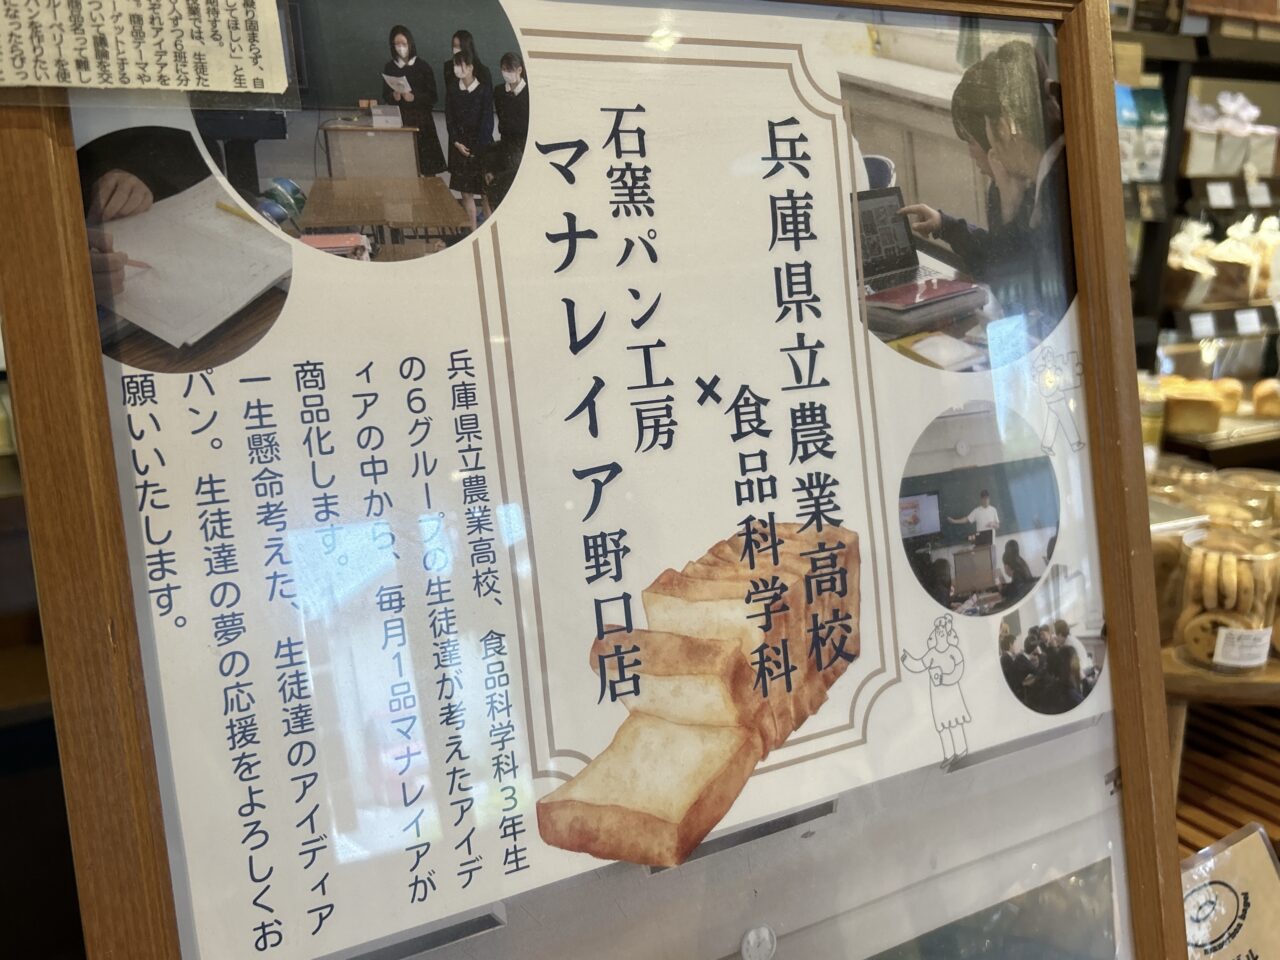 兵庫県立農業高校
食品科学科
×
石窯パン工房
マナレイア野口店
兵庫県立農業高校、食品科学科3年生
の6グループの生徒達が考えたアイデ
ィアの中から、毎月1品マナレイアが
商品化します。
一生懸命考えた、生徒達のアイディア
パン。生徒達の夢の応援をよろしくお
願いいたします。